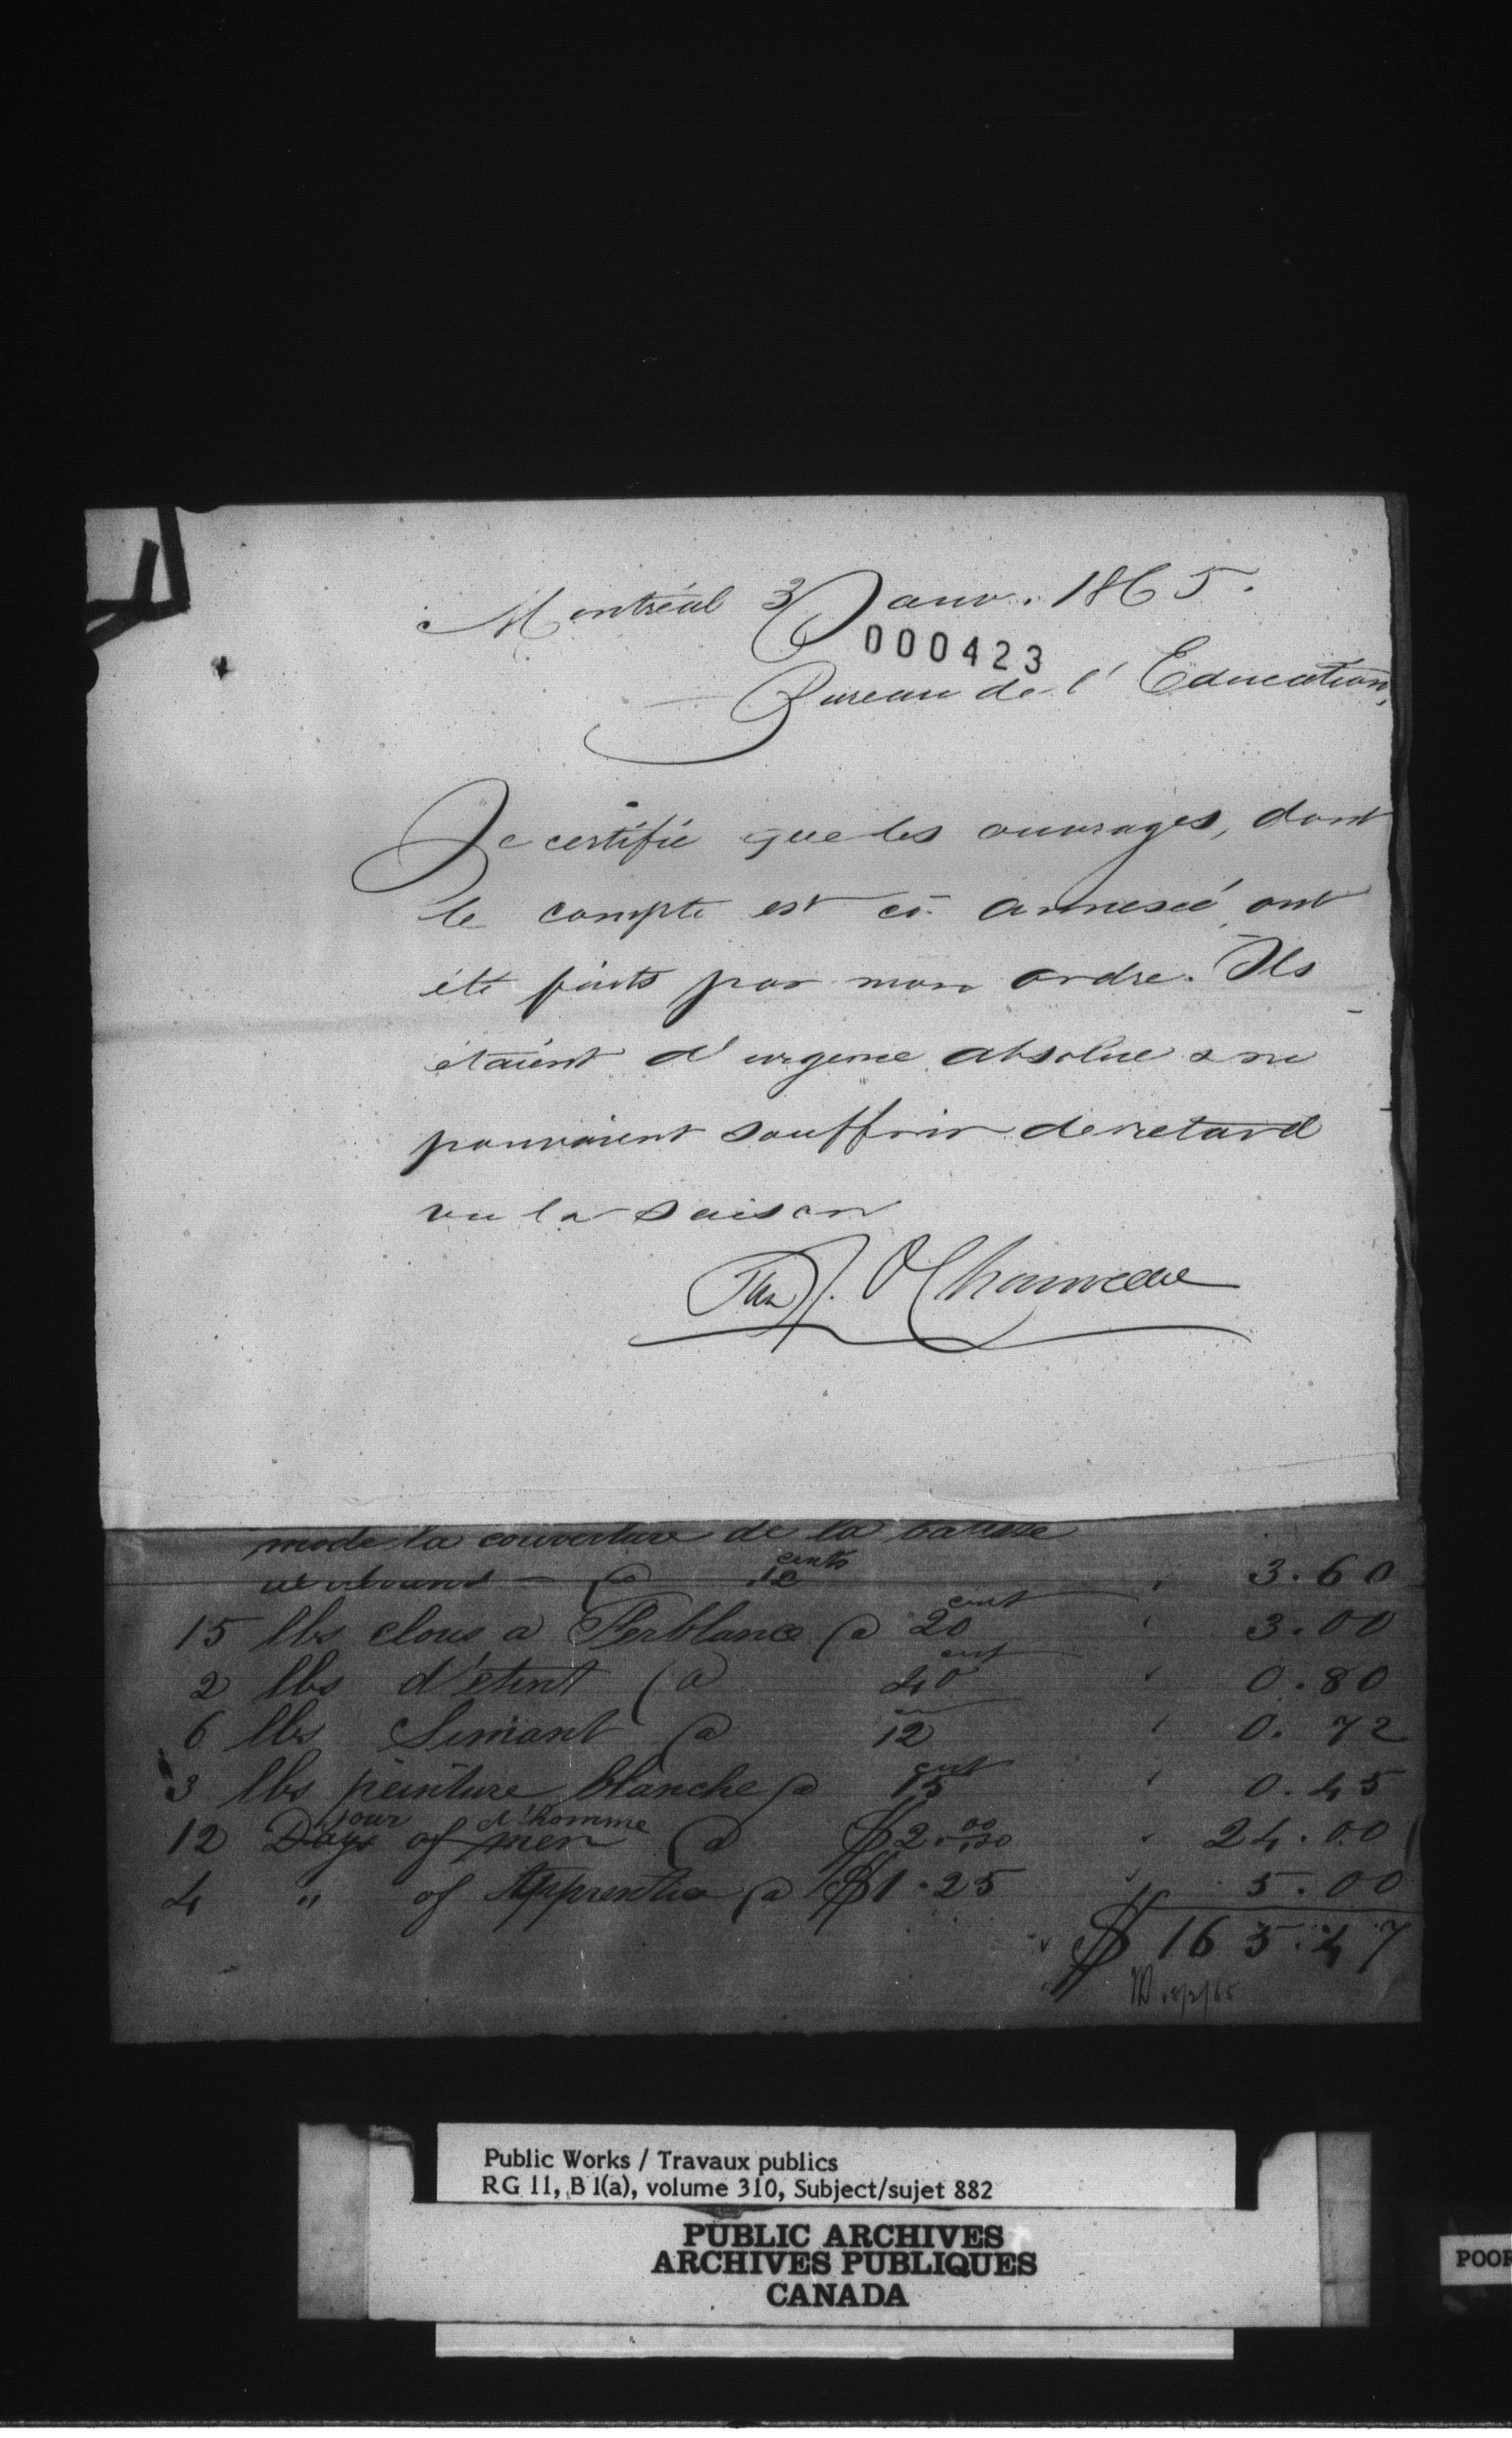 Montréal 3 Janv. 1865.
000423
Bureau de l'Education,
Je certifie que les ouvrages, dont
le compte est ci-annexé ont
été faits par mon ordre. Ils
étaient d'urgence absolue & ne
pouvaient souffrir de retard
vu la saison
J. O Chauveau
couverture de la
12 cents 3.60
15 lbs clous a Ferblanc @ 20 cent 3.00
2 lbs d'étent @ 40 cent 0.80
6 lbs Simant @ 12 0.72
3 lbs peinture blanche @ 15 cent 0.45
jour d'homme
12 Days of men @ $2.00 24.00
4 " of Apprentice @ $1.25 5.00
$165.47
Public Works / Travaux publics
RG 11, B 1(a), volume 310, Subject/sujet 882
PUBLIC ARCHIVES
ARCHIVES PUBLIQUES
CANADA
POOR